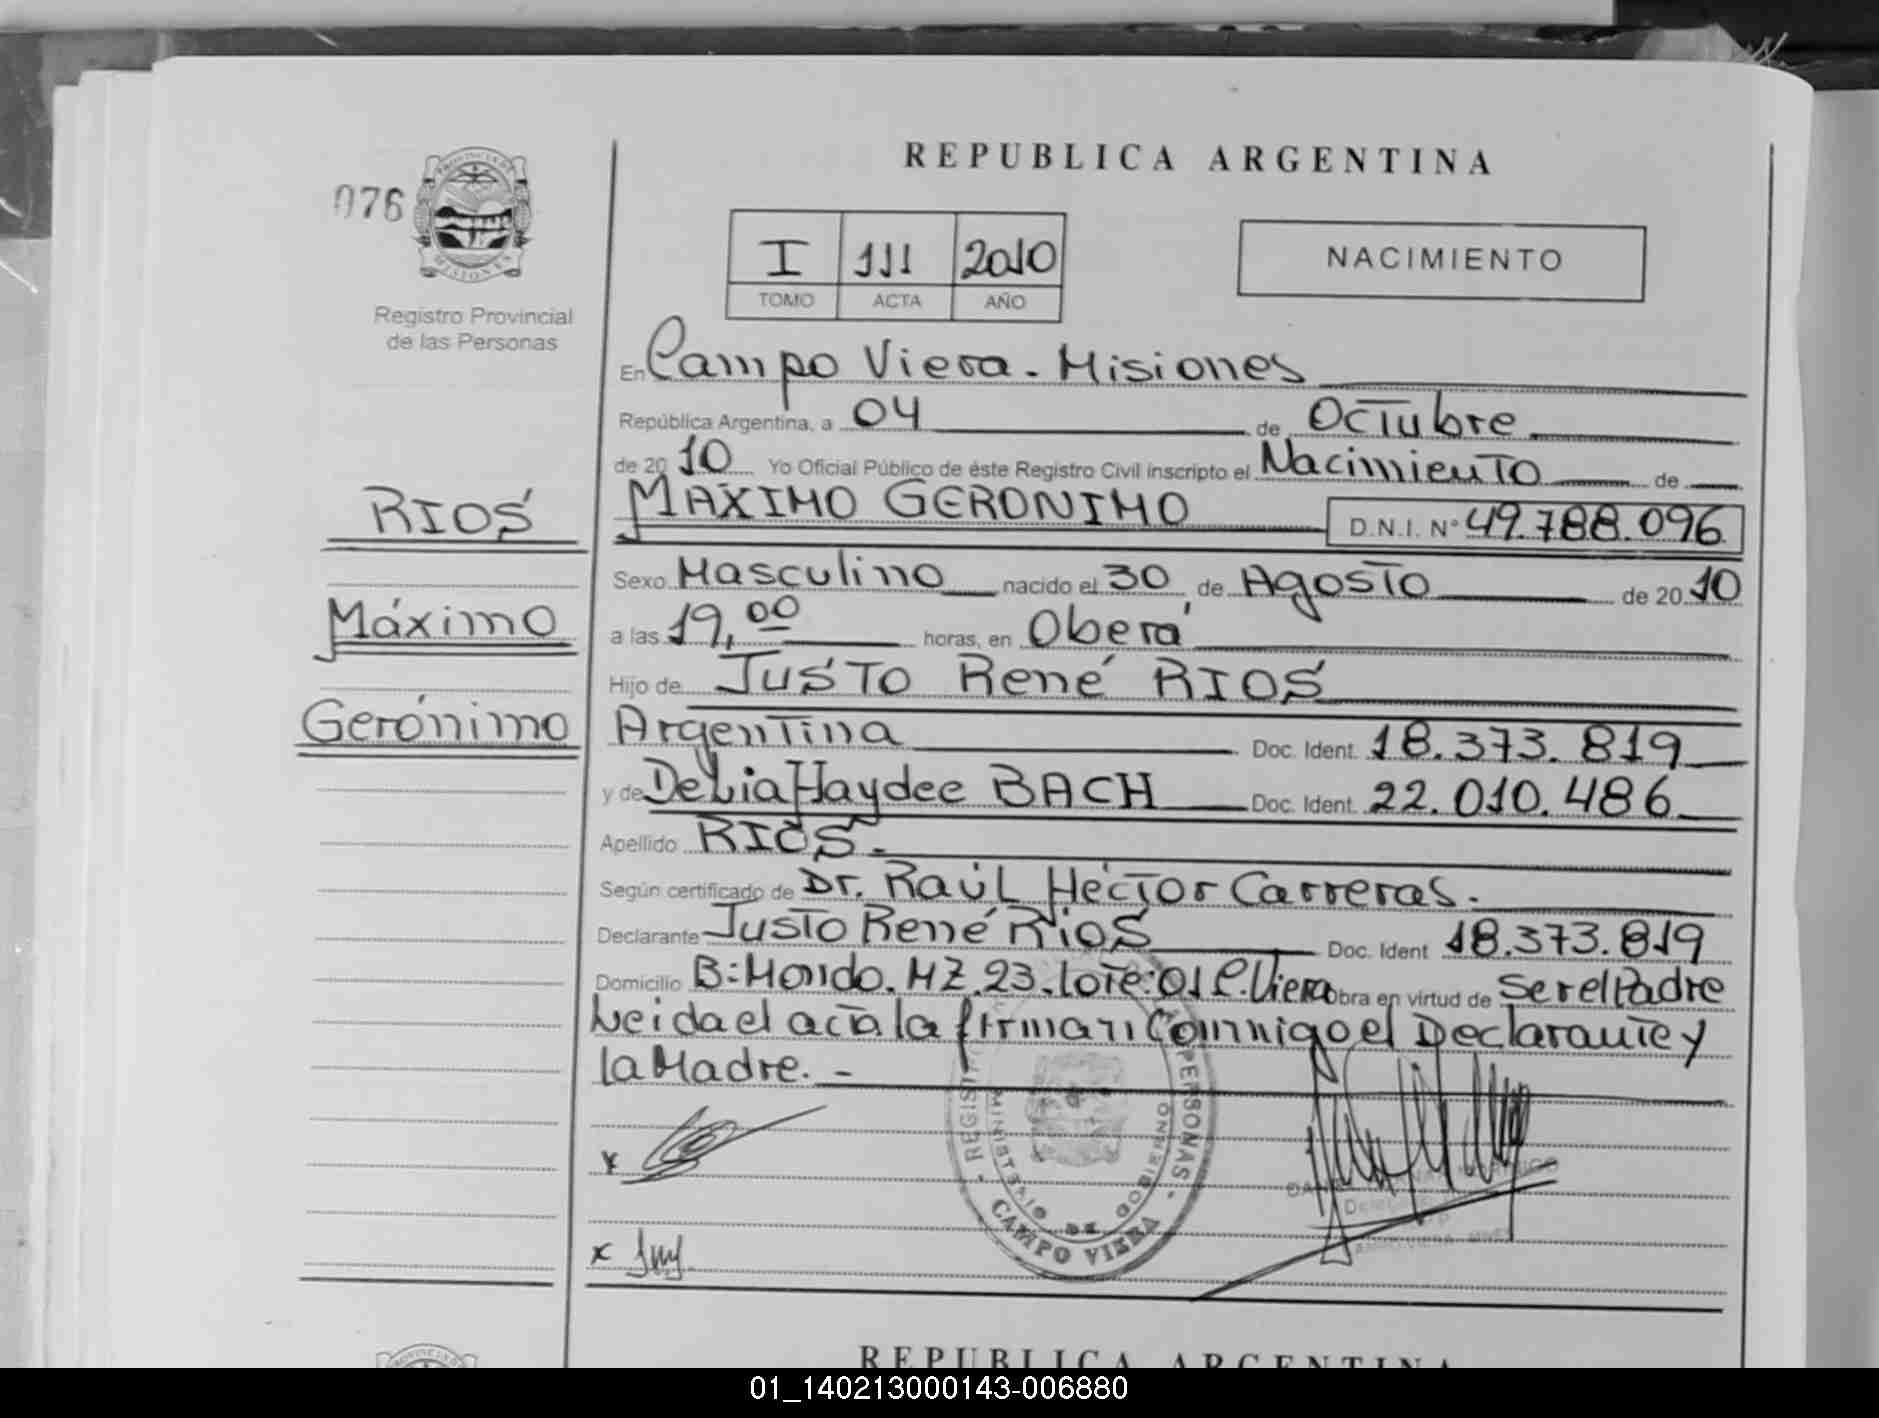 REPUBLICA ARGENTINA
076
PROVINCIA DE
MISIONES
Registro Provincial
de las Personas
I 111 2010
TOMO ACTA AÑO
NACIMIENTO
RIOS
Máximo
Gerónimo
En Campo Viera. Misiones
República Argentina, a 04 de Octubre
de 2010 Yo Oficial Público de éste Registro Civil inscripto el Nacimiento de
MAXIMO GERONIMO D.N.I. Nº 49.788.096
Sexo Masculino nacido el 30 de Agosto de 2010
a las 19,00 horas, en Oberá
Hijo de Justo René RIOS
Argentina Doc. Ident. 18.373.819
y de Delia Haydee BACH Doc. Ident. 22.010.486
Apellido RIOS.-
Según certificado de Dr. Raúl Héctor Carreras.
Declarante Justo René RIOS Doc. Ident 18.373.819
Domicilio B: Mondo. MZ.23.Lote:01 C.Viera Obra en virtud de Ser el Padre
Leida el acta la firman Conmigo el Declarante y
la Madre.-
REGISTRO PERSONAS
MINISTERIO DE GOBIERNO
CAMPO VIERA
x
x
REPUBLICA ARGENTINA
01_140213000143-006880